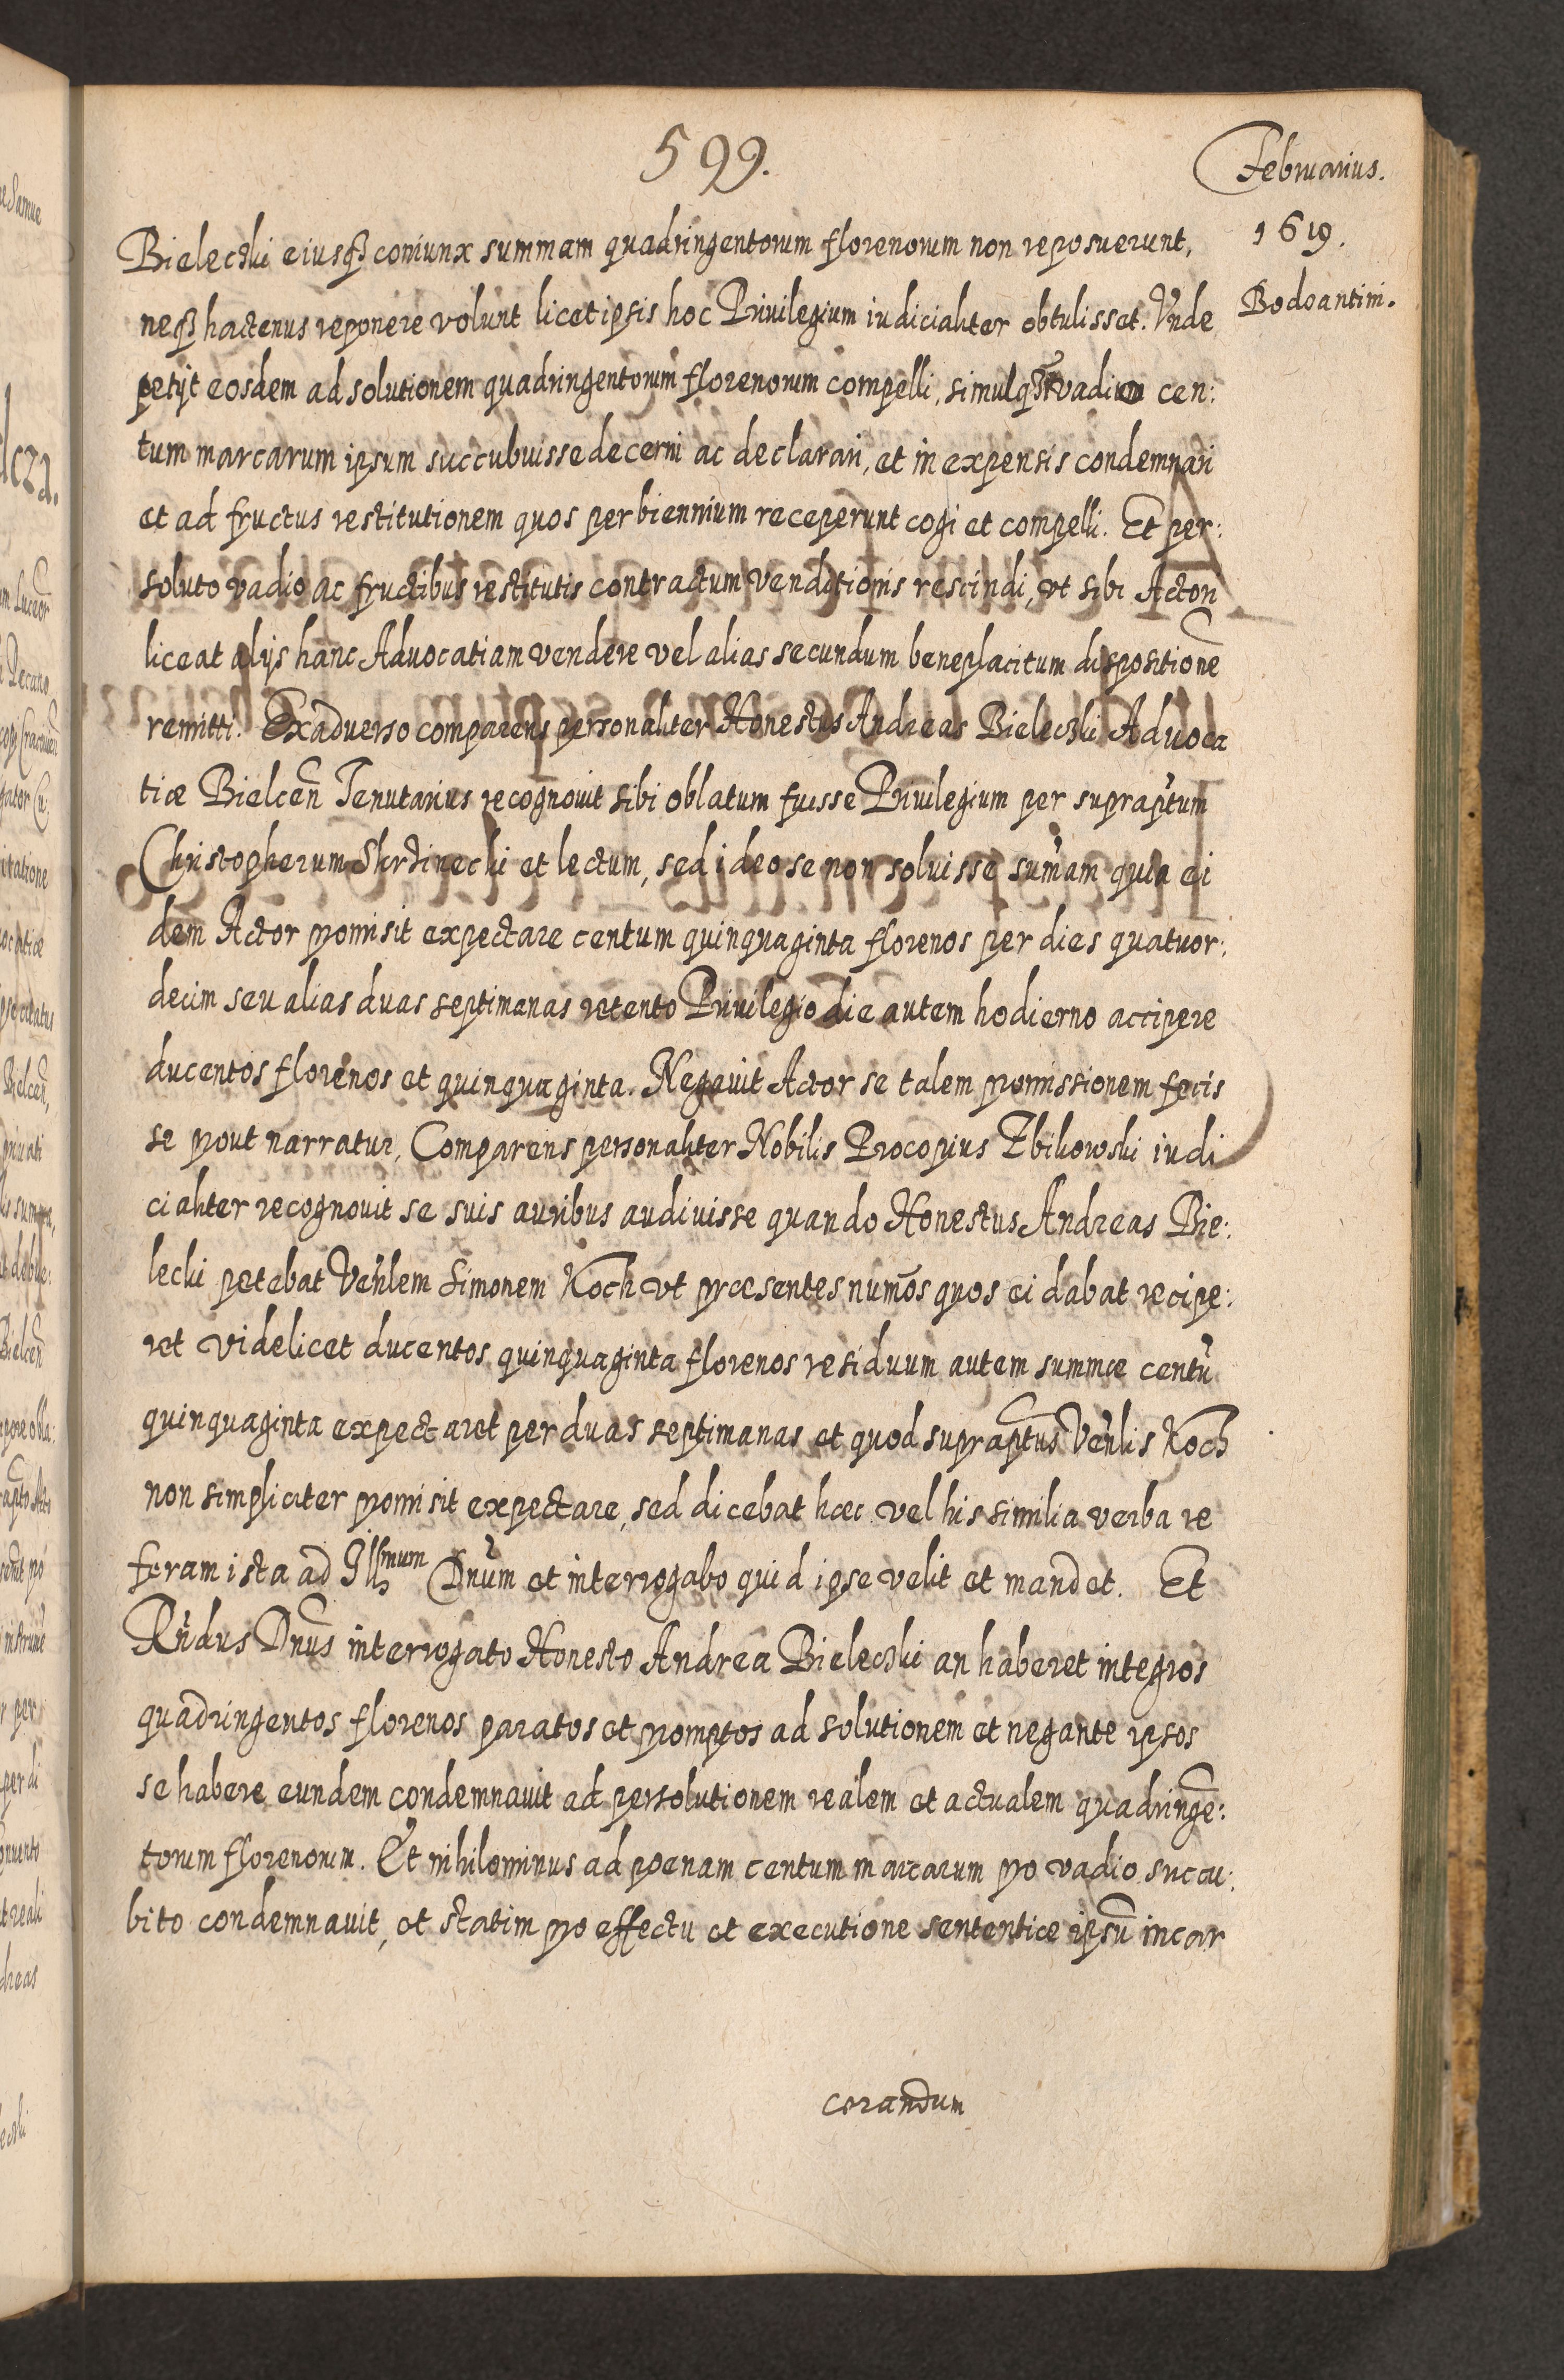 599.
Februarius.
1619.
Bodoantini.
Bieleczki eiusq3 coniunx summam quadringentorum florenorum non reposuerunt,
neq3 hactenus reponere volunt licet ipsis hoc Priuilegium iudicialiter obtulisset. Vnde
petijt eosdem ad solutionem quadringentorum florenorum compelli, simulq3 vadio cen:
tum marcarum ipsum succubuisse decerni ac declarari, et in expensis condemnari
et ad fructus restitutionem quos per biennium receperunt cogi et compelli. Et per:
soluto vadio ac fructibus restitutis contractum venditionis rescindi, vt sibi Actori
liceat alijs hanc Aduocatiam vendere vel alias secundum beneplacitum dispositionē
remitti. Exaduerso comparens personaliter Honestus Andreas Bieleczki Aduoca
tiæ Bielcen̄ Tenutarius recognouit sibi oblatum fuisse Priuilegium per supraptum
Christopherum et lectum, sed ideo se non soluisse sum̃am quia ei
dem Actor promisit expectare centum quinquaginta florenos per dies quatuor:
decim seu alias duas septimanas retento Priuilegio die autem hodierno accipere
ducentos florenos et quinquaginta. Negauit Actor se talem promissionem fecis
se prout narratur, Comparens personaliter Nobilis Procopius Zbikowski iudi
cialiter recognouit se suis auribus audiuisse quando Honestus Andreas Bie:
lecki petebat Veñlem Simonem Koch vt præsentes numōs quos ei dabat recipe:
ret videlicet ducentos quinquaginta florenos residuum autem summæ centũ
quinquaginta expectaret per duas septimanas et quod supraptus Veñlis Koch
non simpliciter promisit expectare, sed dicebat hæc vel his similia verba re
feram ista ad Illmum Dn̄um et interrogabo quid ipse velit et mandet. Et
Rñdus Dn̄us interrogato Honesto Andrea Bieleczki an haberet integros
quadringentos florenos paratos et promptos ad solutionem et negante ipsos
se habere eundem condemnauit ad persolutionem realem et actualem quadringē:
torum florenorum. Et nihilominus ad poenam centum marcarum pro vadio succu:
bito condemnauit, et statim pro effectu et executione sententiæ ipsū incar
cerandum